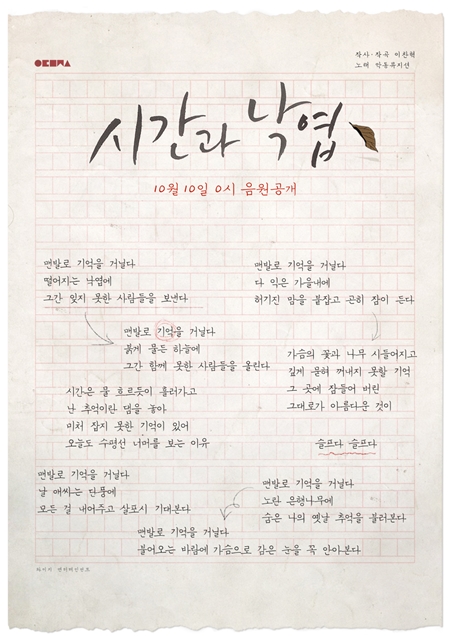 작사·작곡 이찬혁
노래 악동뮤지션
시간과 낙엽
10월 10일 0시 음원공개
맨발로 기억을 거닐다
떨어지는 낙엽에
그간 잊지 못한 사람들을 보낸다
맨발로 기억을 거닐다
다 익은 가을내에
허기진 맘을 붙잡고 곤히 잠이 든다
맨발로 기억을 거닐다
붉게 물든 하늘에
그간 함께 못한 사람들을 올린다
가슴의 꽃과 나무 시들어지고
깊게 묻혀 꺼내지 못할 기억
그 곳에 잠들어 버린
그대로가 아름다운 것이
시간은 물 흐르듯이 흘러가고
난 추억이란 댐을 놓아
미처 잡지 못한 기억이 있어
오늘도 수평선 너머를 보는 이유
슬프다 슬프다
맨발로 기억을 거닐다
날 애싸는 단풍에
모든 걸 내어주고 살포시 기대본다
맨발로 기억을 거닐다
노란 은행나무에
숨은 나의 옛날 추억을 불러본다
맨발로 기억을 거닐다
불어오는 바람에 가슴으로 감은 눈을 꼭 안아본다
와이지 엔터테인먼트